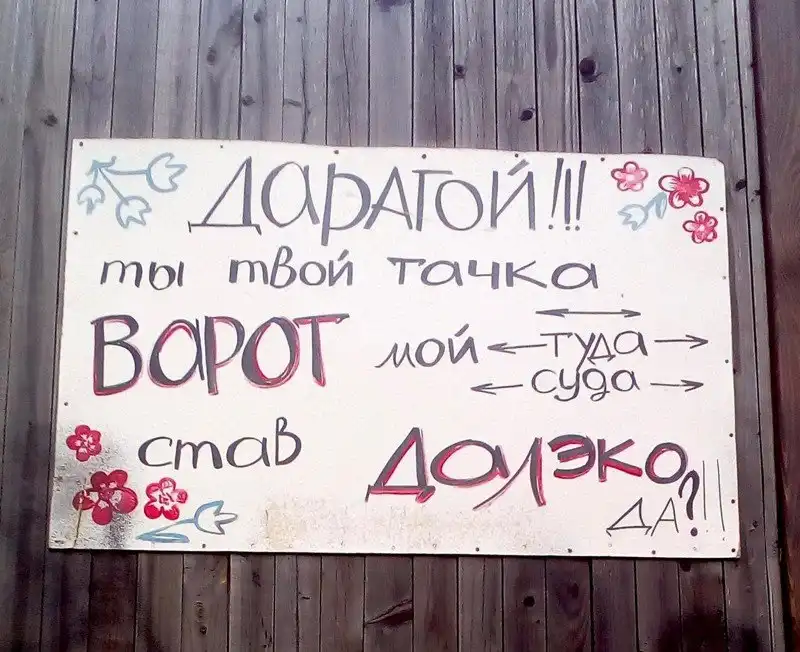 ДАРАГОЙ!!!
ты твой тачка
ВАРОТ мой туда
суда
став ДОЛЭКО
ДА?!!